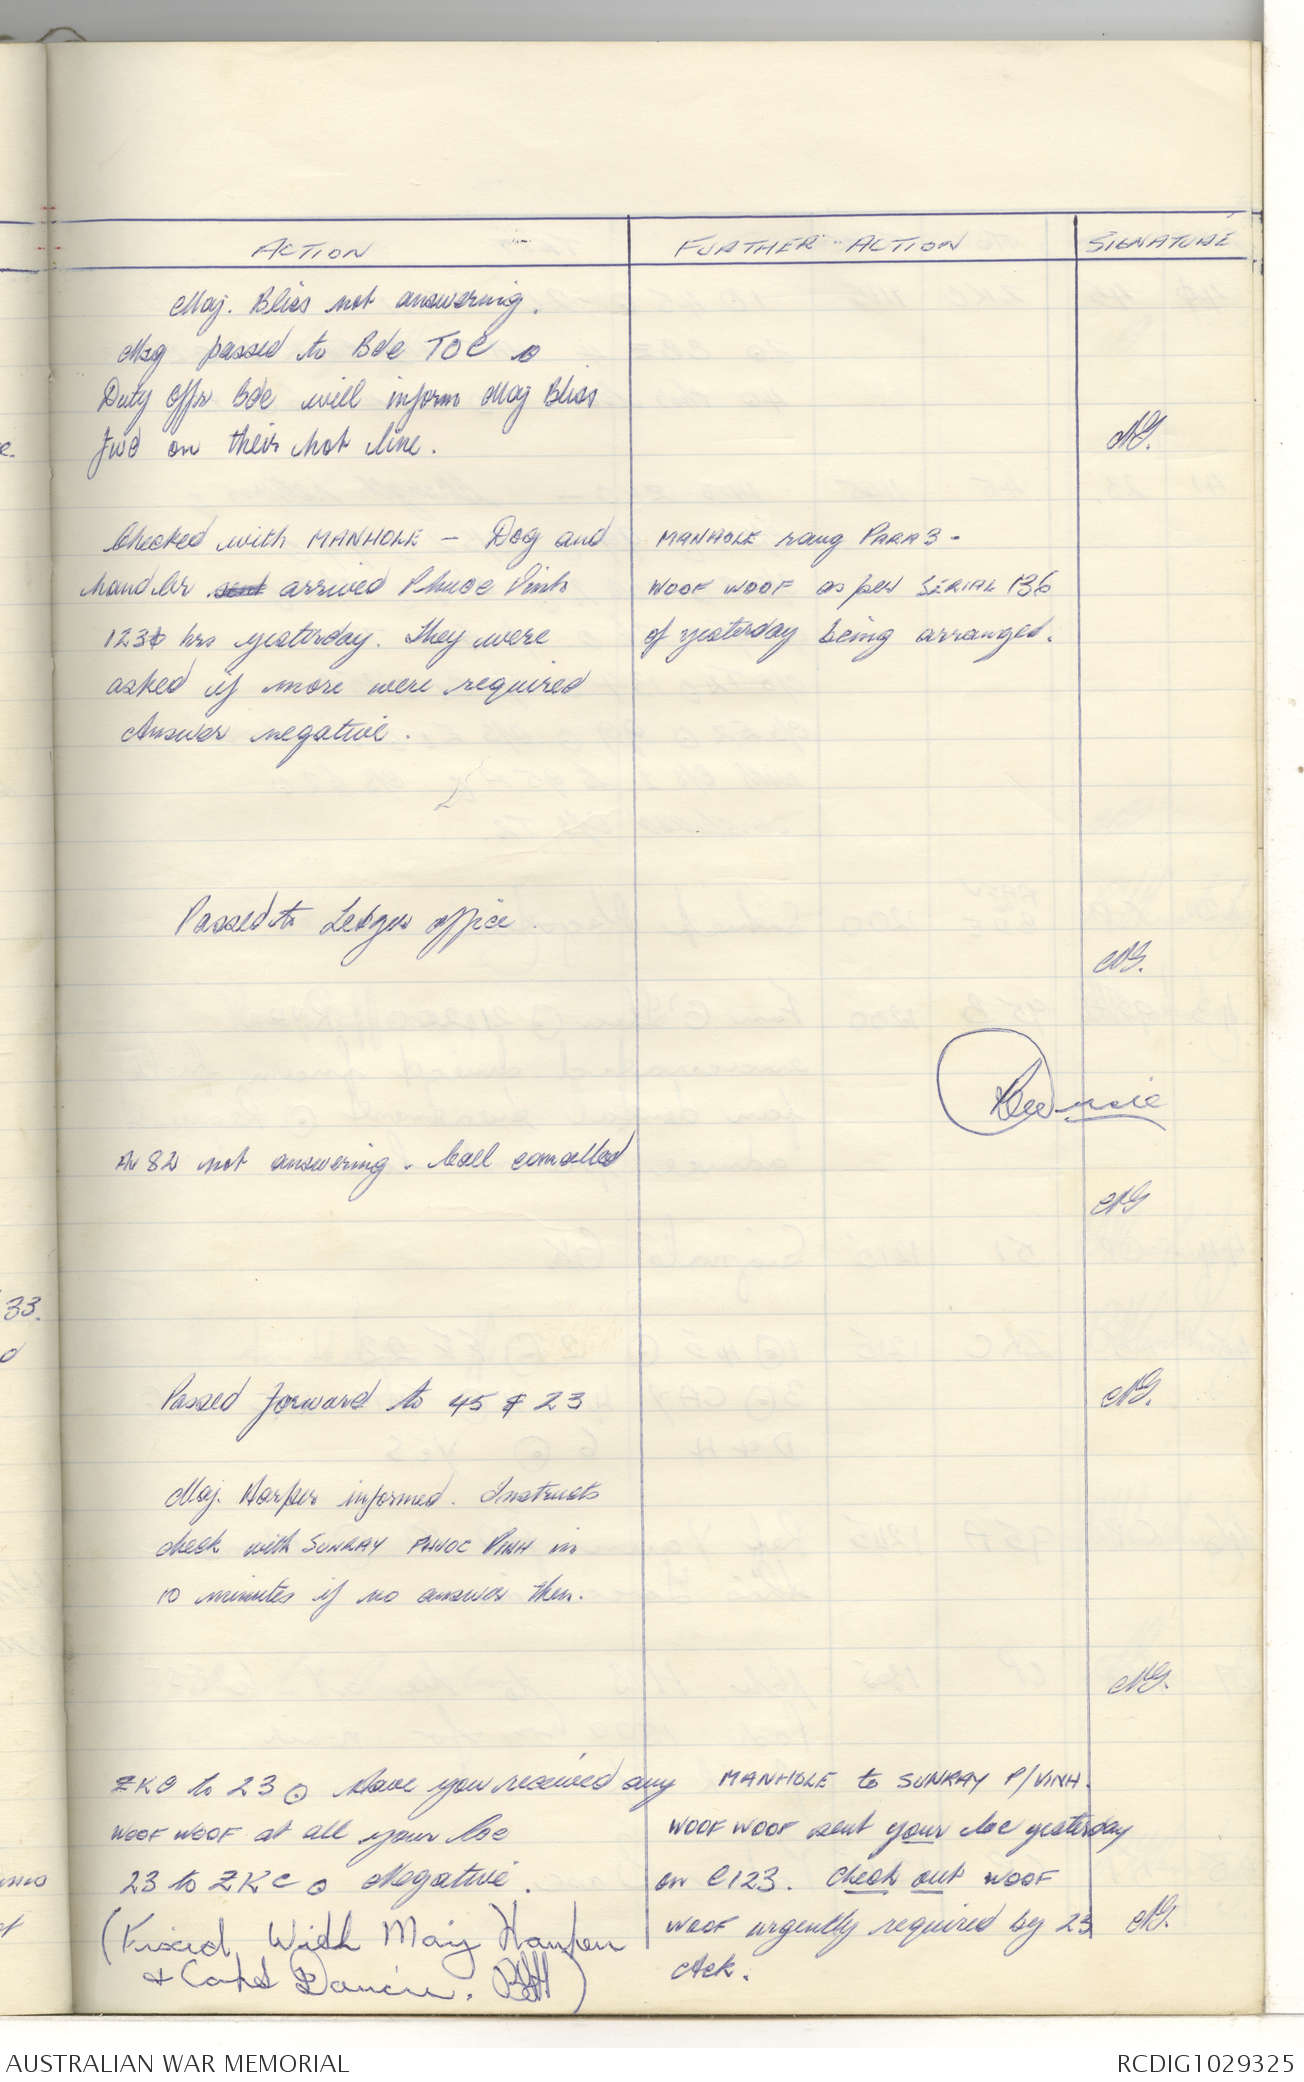 ACTION
FURTHER ACTION
SIGNATURE
Maj. Bliss not answering.
Msg passed to Bde TOC
Duty offr Bde will inform Maj Bliss
fwd on their hot line.
Checked with MANHOLE - Dog and
handler sent arrived Phuoc Vinh
hrs yesterday. They were
asked if more were required
Answer negative.
MANHOLE rang PARA 3.
WOOF WOOF as per SERIAL 136
of yesterday being arranged.
Passed to Ledger office.
82 not answering. Call cancelled
Passed forward to 45 & 23
Maj. Harper informed. Instructs
check with SUNRAY PHUOC VINH in
10 minutes if no answer then.
ZKC to 23 ⊙ Have you received any
WOOF WOOF at all your loc
23 to ZKC ⊙ Negative.
(Fixed With Maj Harper
& Capt
MANHOLE to SUNRAY P/VINH.
WOOF WOOF sent your loc yesterday
on C123. Check out WOOF
WOOF urgently required by 23
Ack.
33.
AUSTRALIAN WAR MEMORIAL
RCDIG1029325